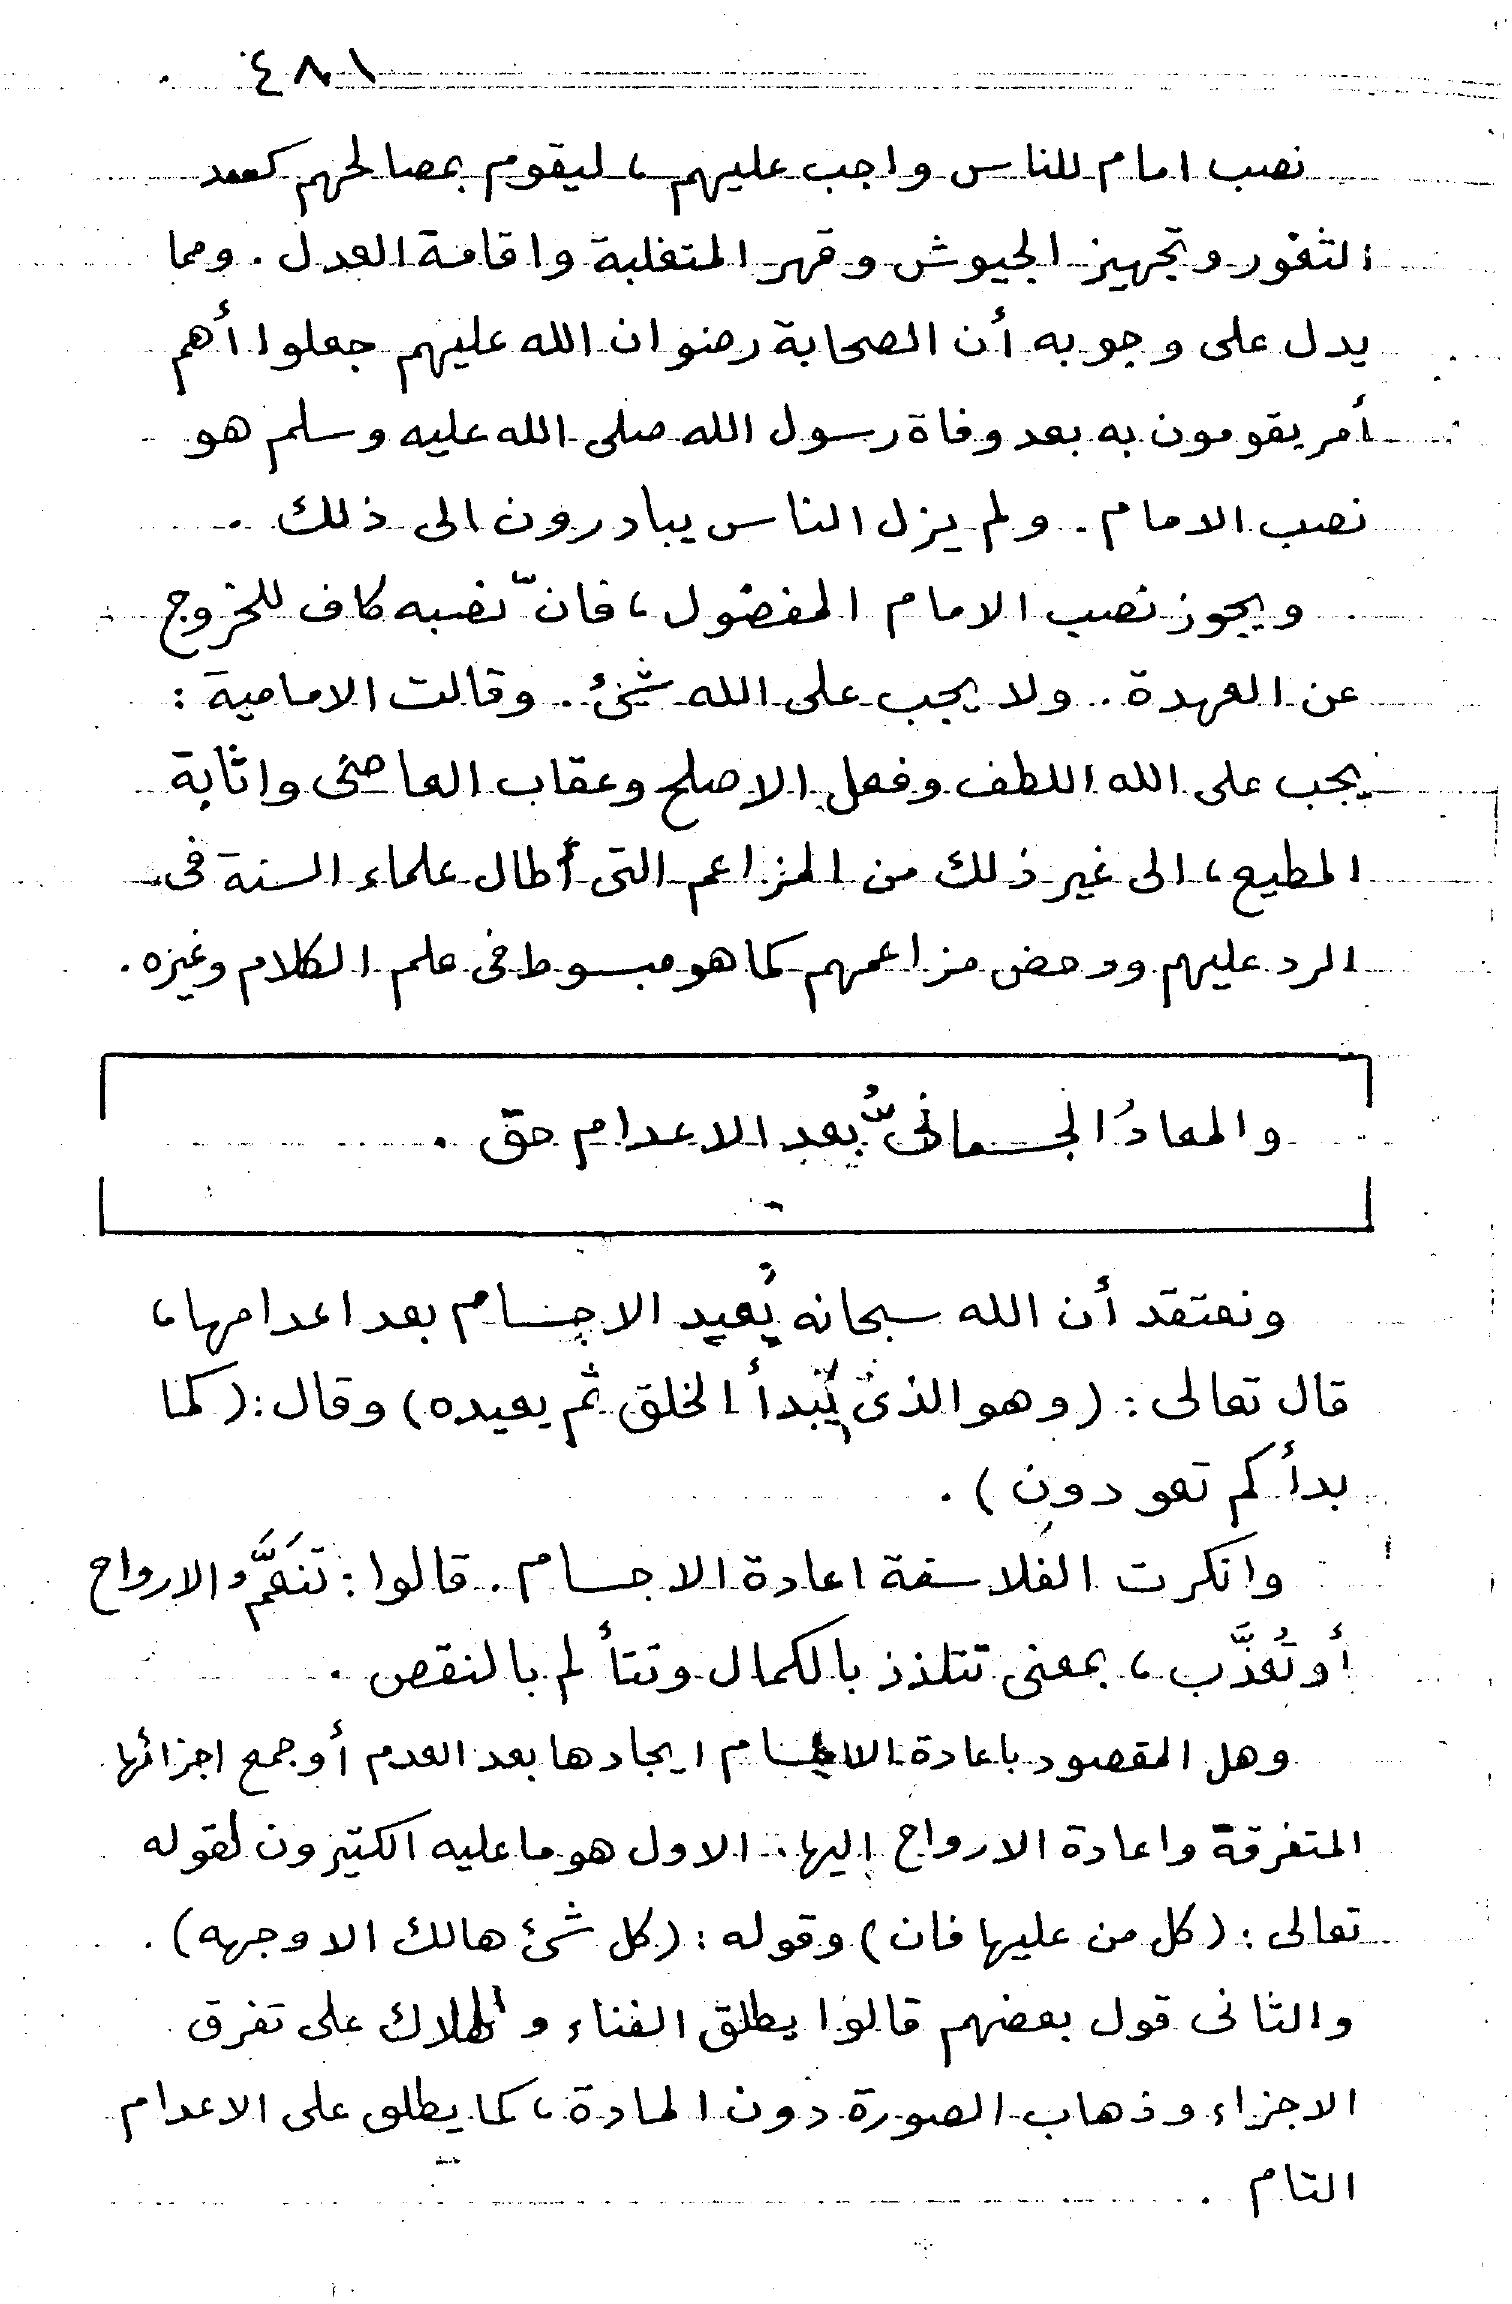 ٤٨١
نصب امام للناس واجب عليهم، ليقوم بمصالحهم كسد
الثغور وتجهيز الجيوش وقهر المتغلبة واقامة العدل. ومما
يدل على وجوبه أن الصحابة رضوان الله عليهم جعلوا أهم
أمر يقومون به بعد وفاة رسول الله صلى الله عليه وسلم هو
نصب الامام. ولم يزل الناس يبادرون الى ذلك.
ويجوز نصب الامام المفضول، فانّ نصبه كاف للخروج
عن العهدة. ولا يجب على الله شئ. وقالت الامامية:
يجب على الله اللطف وفعل الاصلح وعقاب العاصى واثابة
المطيع، الى غير ذلك من المزاعم التى أطال علماء السنة فى
الرد عليهم ودحض مزاعمهم كما هو مبسوط فى علم الكلام وغيره.
والمعادُ الجسمانىُّ بعد الاعدام حق.
ونعتقد أن الله سبحانه يُعيد الاجسام بعد اعدامها،
قال تعالى: (وهو الذى يَبدأ الخلق ثم يعيده) وقال: (كما
بدأكم تعودون).
وانكرت الفلاسفة اعادة الاجسام. قالوا: تَنَعَّم الارواح
أو تُعذَّب، بمعنى تتلذذ بالكمال وتتألم بالنقص.
وهل المقصود باعادة الاجسام ايجادها بعد العدم أو جمع اجزائها
المتفرقة واعادة الارواح إليها. الاول هو ما عليه الكثيرون لقوله
تعالى: (كل من عليها فان) وقوله: (كل شئ هالك الا وجهه).
والثانى قول بعضهم قالوا يطلق الفناء والهلاك على تفرق
الاجزاء وذهاب الصورة دون المادة، كما يطلق على الاعدام
التام.